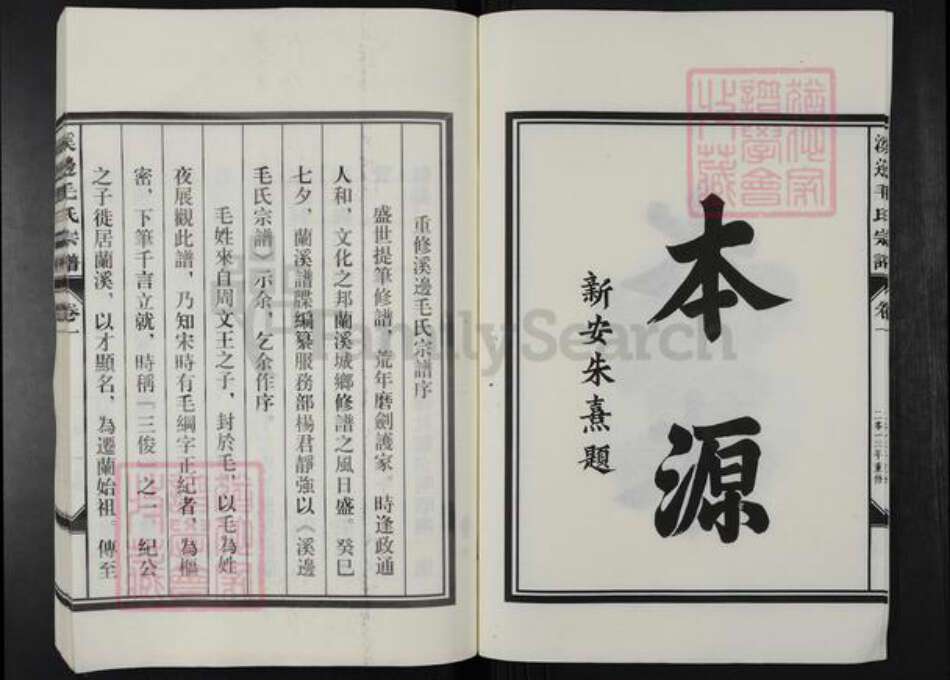 本源
新安朱熹題
溪邊毛氏宗譜
卷一
二零一三年重修
重修溪邊毛氏宗譜序
盛世提筆修譜，荒年磨劍護家。時逢政通
人和，文化之邦蘭溪城鄉修譜之風日盛。癸巳
七夕，蘭溪譜牒編纂服務部楊君靜強以《溪邊
毛氏宗譜》示余，乞余作序。
毛姓來自周文王之子，封於毛，以毛為姓
夜展觀此譜，乃知宋時有毛綱字正紀者，為樞
密，下筆千言立就，時稱「三俊」之一。紀公
之子徙居蘭溪，以才顯名，為遷蘭始祖。傳至
溪邊毛氏宗譜
卷一
FamilySearch